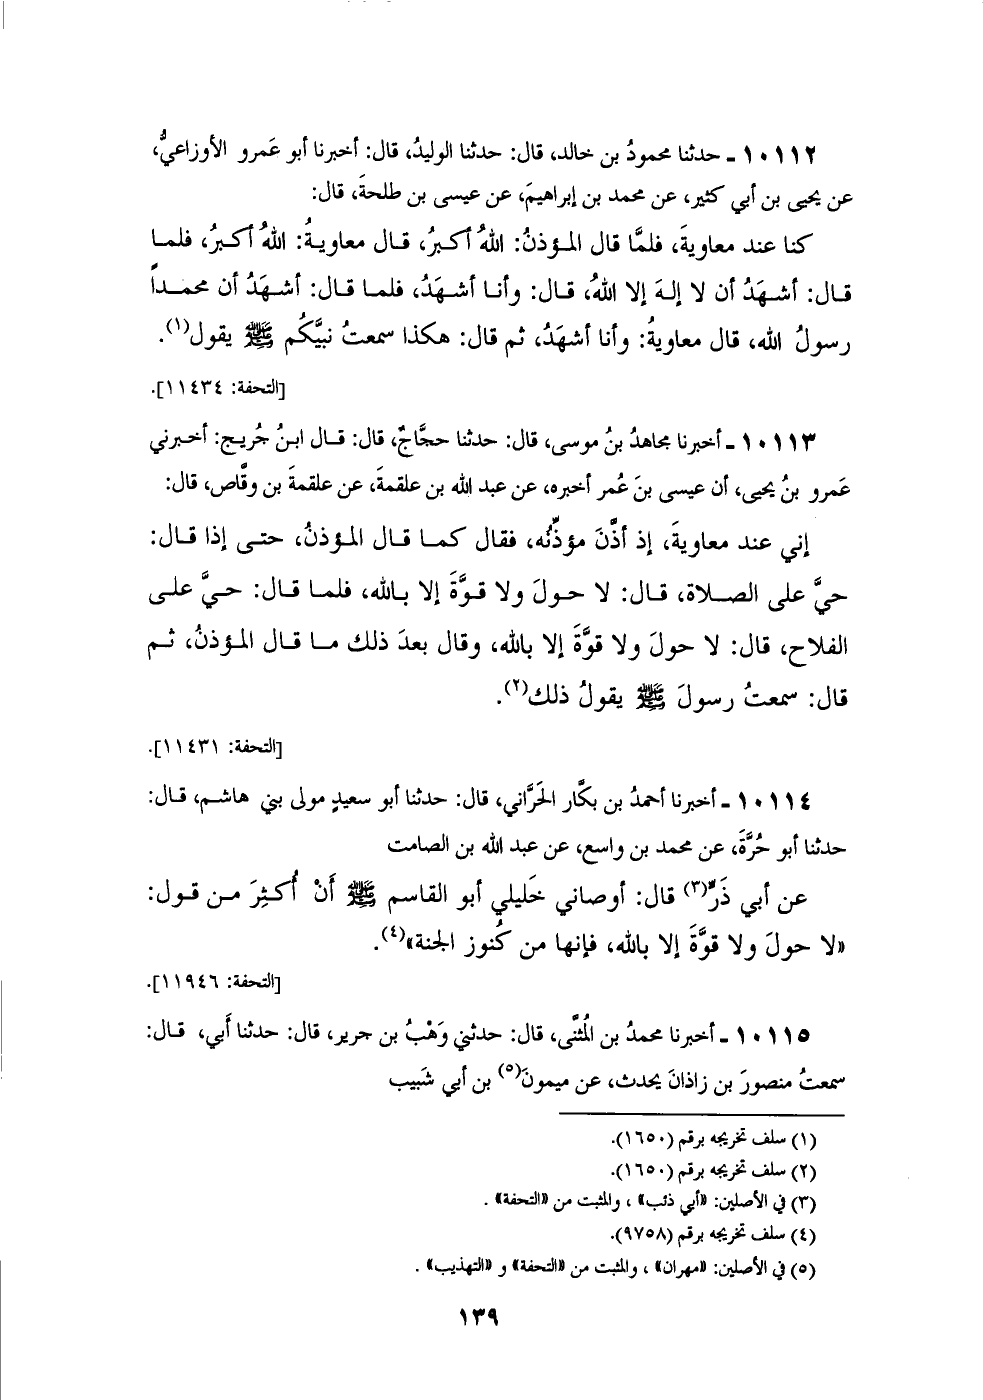 ١٠١١٢ ـ حدثنا محمودُ بن خالد، قال: حدثنا الوليدُ، قال: أخبرنا أبو عَمرو الأوزاعيُّ،
عن يحيى بن أبي كثير، عن محمد بن إبراهيمَ، عن عيسى بن طلحةَ، قال:
كنا عند معاويةَ، فلمَّا قال المؤذنُ: اللهُ أكبرُ، قال معاويةُ: اللهُ أكبرُ، فلما
قال: أشهَدُ أن لا إلهَ إلا اللهُ، قال: وأنا أشهَدُ، فلما قال: أشهَدُ أن محمداً
رسولُ الله، قال معاويةُ: وأنا أشهَدُ، ثم قال: هكذا سمعتُ نبيَّكُم ﷺ يقول(١).
[التحفة: ١١٤٣٤].
١٠١١٣ ـ أخبرنا مجاهدُ بنُ موسى، قال: حدثنا حجَّاجٌ، قال: قال ابنُ جُريج: أخبرني
عَمرو بنُ يحيى، أن عيسى بنَ عُمر أخبره، عن عبد الله بن علقمةَ، عن علقمةَ بن وقَّاص، قال:
إني عند معاويةَ، إذ أذَّنَ مؤذِّنُه، فقال كما قال المؤذنُ، حتى إذا قال:
حيَّ على الصلاة، قال: لا حولَ ولا قوَّةَ إلا بالله، فلما قال: حيَّ على
الفلاح، قال: لا حولَ ولا قوَّةَ إلا بالله، وقال بعدَ ذلك ما قال المؤذنُ، ثم
قال: سمعتُ رسولَ ﷺ يقولُ ذلك(٢).
[التحفة: ١١٤٣١].
١٠١١٤ ـ أخبرنا أحمدُ بن بكَّار الحَرَّاني، قال: حدثنا أبو سعيدٍ مولى بني هاشم، قال:
حدثنا أبو حُرَّةَ، عن محمد بن واسع، عن عبد الله بن الصامت
عن أبي ذَرٍّ(٣) قال: أوصاني خَليلي أبو القاسم ﷺ أَنْ أُكثِرَ من قول:
«لا حولَ ولا قوَّةَ إلا بالله، فإنها من كُنوز الجنة»(٤).
[التحفة: ١١٩٤٦].
١٠١١٥ ـ أخبرنا محمدُ بن المُثنَّى، قال: حدثني وَهْبُ بن جرير، قال: حدثنا أَبي، قال:
سمعتُ منصورَ بن زاذانَ يحدث، عن ميمونَ(٥) بن أبي شَبيب
(١) سلف تخريجه برقم (١٦٥٠).
(٢) سلف تخريجه برقم (١٦٥٠).
(٣) في الأصلين: «أبي ذئب» ، والمثبت من «التحفة» .
(٤) سلف تخريجه برقم (٩٧٥٨).
(٥) في الأصلين: «مهران» ، والمثبت من «التحفة» و «التهذيب» .
١٣٩